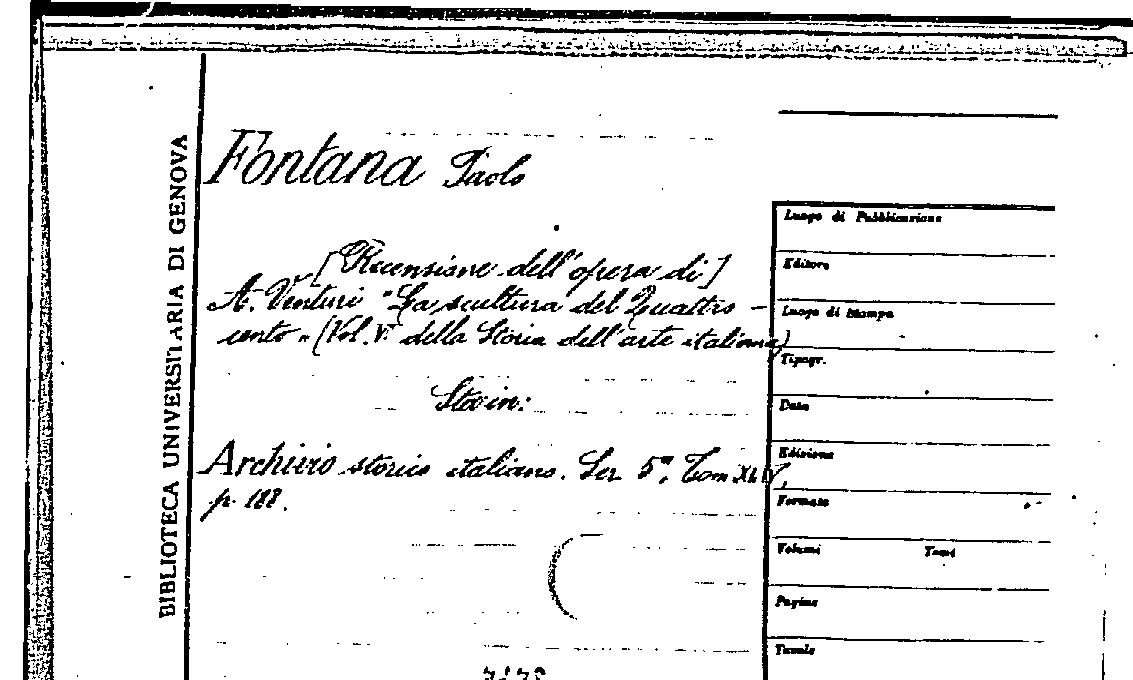 BIBLIOTECA UNIVERSITARIA DI GENOVA
Fontana Paolo
[Recensione dell'opera di]
A. Venturi "La scultura del Quattro-
cento" (Vol. V. della Storia dell'arte italiana)
Sta in:
Archivio storico italiano. Ser. 5ª, Tom XLIV,
p. 188.
Luogo di Pubblicazione
Editore
Luogo di Stampa
Tipogr.
Data
Edizione
Formato
Volumi Tomi
Pagine
Tavole